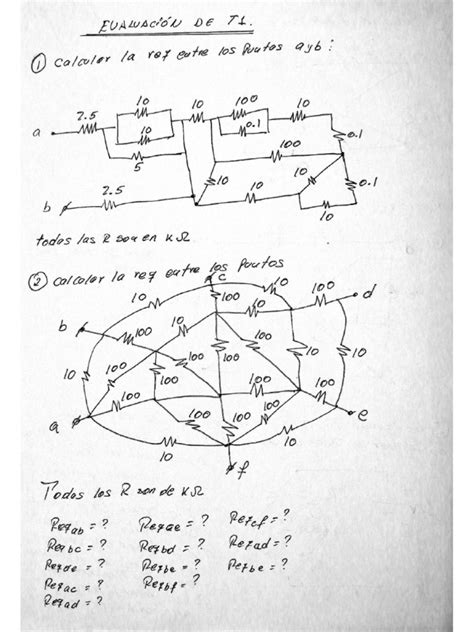 EVALUACIÓN DE T1.
① Calcular la req entre los Puntos a y b :
2.5 10 10 100 10
a 10 0.1 0.1
5 100
2.5 10 10 10 0.1
b 10
todos las R son en KΩ
② Calcular la req entre los Puntos
c
10 100 10 100 d
b 100 10
10 100 100 100 10 10
100 100 100
a 100 100 100 100 e
10 10
f
Todos los R son de KΩ
Reqab = ? Reqae = ? Reqcf = ?
Reqbc = ? Reqbd = ? Reqad = ?
Reqde = ? Reqbe = ? Reqbe = ?
Reqac = ? Reqbf = ?
Reqad = ?